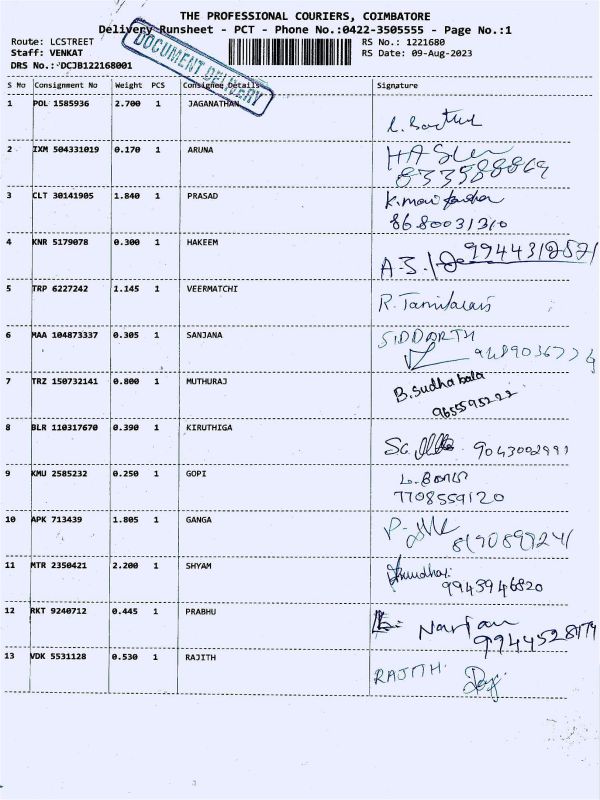 THE PROFESSIONAL COURIERS, COIMBATORE
Delivery Runsheet - PCT - Phone No.:0422-3505555 - Page No.:1
Route: LCSTREET
RS No.: 1221680
Staff: VENKAT
RS Date: 09-Aug-2023
DRS No.: DCJB122168001
DOCUMENT DELIVERY
S No Consignment No Weight PCS Consignee Details Signature
1 POL 1585936 2.700 1 JAGANATHAN
2 IXM 504331019 0.170 1 ARUNA
833588869
3 CLT 30141905 1.840 1 PRASAD
8680031310
4 KNR 5179078 0.300 1 HAKEEM
5 TRP 6227242 1.145 1 VEERMATCHI
R. Tamilarasi
6 MAA 104873337 0.305 1 SANJANA
SIDDARTH
7 TRZ 150732141 0.800 1 MUTHURAJ
B. Sudha bala
9655595222
8 BLR 110317670 0.390 1 KIRUTHIGA
9043002991
9 KMU 2585232 0.250 1 GOPI
7708559120
10 APK 713439 1.805 1 GANGA
11 MTR 2350421 2.200 1 SHYAM
9943946820
12 RKT 9240712 0.445 1 PRABHU
13 VDK 5531128 0.530 1 RAJITH
RAJITH.